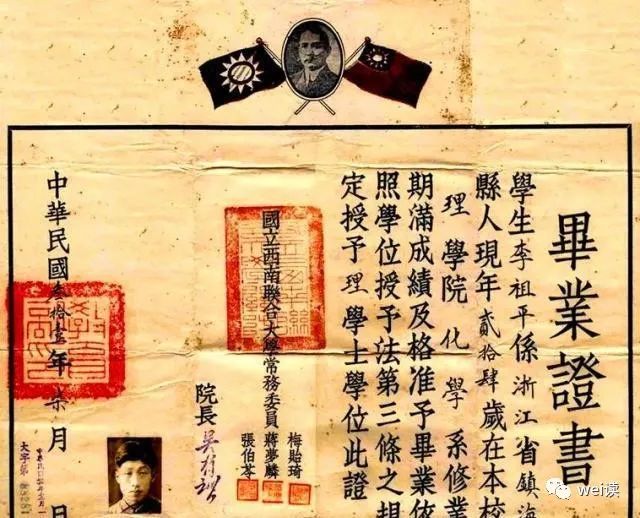 畢業證書
學生李祖平係浙江省鎮海
縣人現年貳拾肆歲在本校
理學院化學系修業
期滿成績及格准予畢業依
照學位授予法第三條之規
定授予理學士學位此證
國立西南聯合大學常務委員
梅貽琦
蔣夢麟
張伯苓
院長吳有訓
中華民國叁拾壹年柒月 日
大字第
wei读